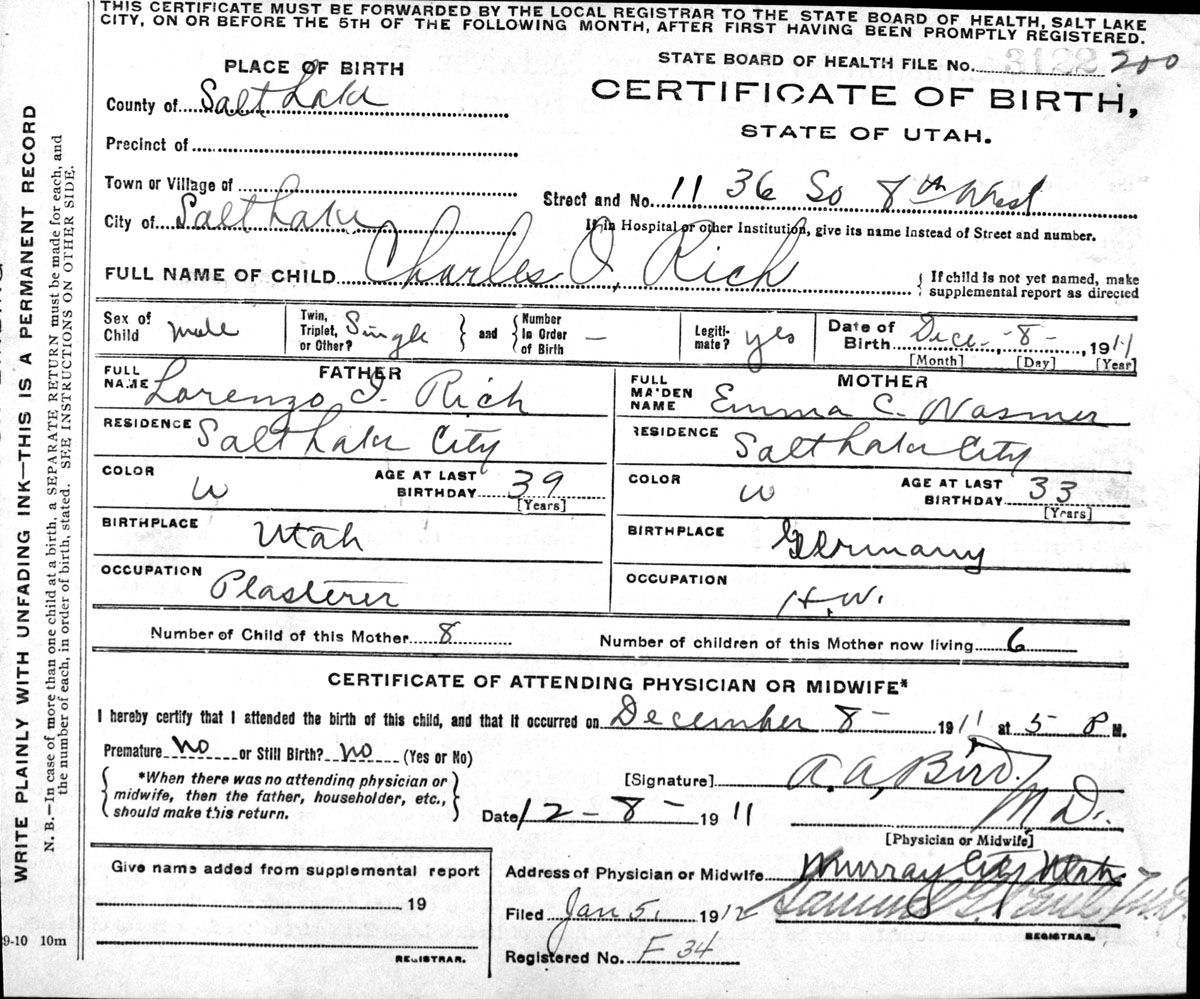 THIS CERTIFICATE MUST BE FORWARDED BY THE LOCAL REGISTRAR TO THE STATE BOARD OF HEALTH, SALT LAKE
CITY, ON OR BEFORE THE 5TH OF THE FOLLOWING MONTH, AFTER FIRST HAVING BEEN PROMPTLY REGISTERED.
WRITE PLAINLY WITH UNFADING INK—THIS IS A PERMANENT RECORD
N. B.—In case of more than one child at a birth, a SEPARATE RETURN must be made for each, and
the number of each, in order of birth, stated. SEE INSTRUCTIONS ON OTHER SIDE.
STATE BOARD OF HEALTH FILE No. 3122 200
CERTIFICATE OF BIRTH,
STATE OF UTAH.
PLACE OF BIRTH
County of Salt Lake
Precinct of
Town or Village of
Street and No. 1136 So 8th West
City of Salt Lake
If in Hospital or other Institution, give its name instead of Street and number.
FULL NAME OF CHILD Charles O, Rich
{ If child is not yet named, make
supplemental report as directed
Sex of Child male
Twin, Triplet, or Other? Single } and { Number in Order of Birth —
Legiti- mate? yes
Date of Birth Dec. -8- 1911
[Month] [Day] [Year]
FATHER
FULL NAME Lorenzo I. Rich
MOTHER
FULL MAIDEN NAME Emma C. Wasmer
RESIDENCE Salt Lake City
RESIDENCE Salt Lake City
COLOR W AGE AT LAST BIRTHDAY 39 [Years]
COLOR W AGE AT LAST BIRTHDAY 33 [Years]
BIRTHPLACE Utah
BIRTHPLACE Germany
OCCUPATION Plasterer
OCCUPATION H.W.
Number of Child of this Mother 8 Number of children of this Mother now living 6
CERTIFICATE OF ATTENDING PHYSICIAN OR MIDWIFE*
I hereby certify that I attended the birth of this child, and that it occurred on December 8- 1911 at 5 P M.
Premature no or Still Birth? no (Yes or No)
{ *When there was no attending physician or
midwife, then the father, householder, etc.,
should make this return. }
[Signature] A. A, Bird. M D.
Date 12-8- 1911
[Physician or Midwife]
Give name added from supplemental report
19
REGISTRAR.
Address of Physician or Midwife Murray City Utah.
Filed Jan 5, 1912 Samuel G. Paul, M.D.
REGISTRAR.
Registered No. F 34
9-10 10m